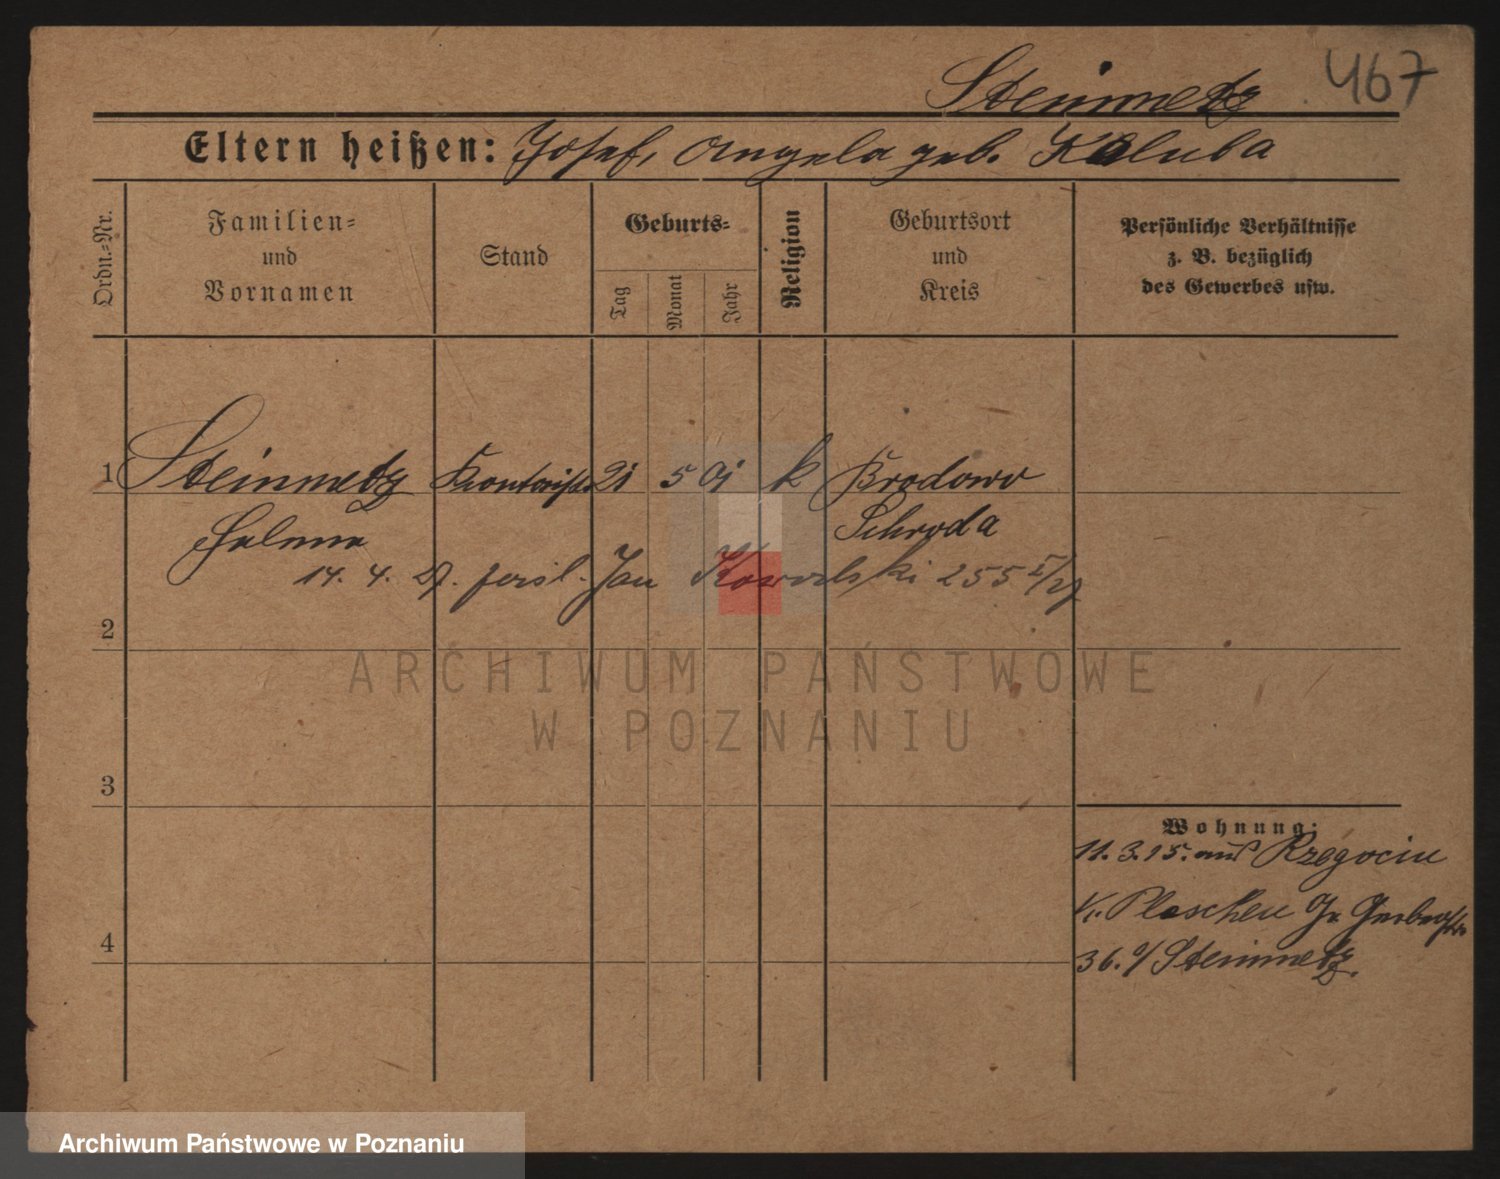 Steinmetz 467
Eltern heißen: Josef, Angela geb. Kaluba
Ordn.-Nr.
Familien-
und
Vornamen
Stand
Geburts-
Tag
Monat
Jahr
Religion
Geburtsort
und
Kreis
Persönliche Verhältnisse
z. B. bezüglich
des Gewerbes usw.
1 Steinmetz Kontorist. 21 5 01 k Brodowo
Helene Schroda
14. 4. 27. Jan Kowalski 255 I/27
2
ARCHIWUM PAŃSTWOWE
W POZNANIU
3
Wohnung:
11. 3. 15. aus Rzegocin
Kr. Pleschen Gr Gerberstr.
4
36. b/ Steinmetz.
Archiwum Państwowe w Poznaniu